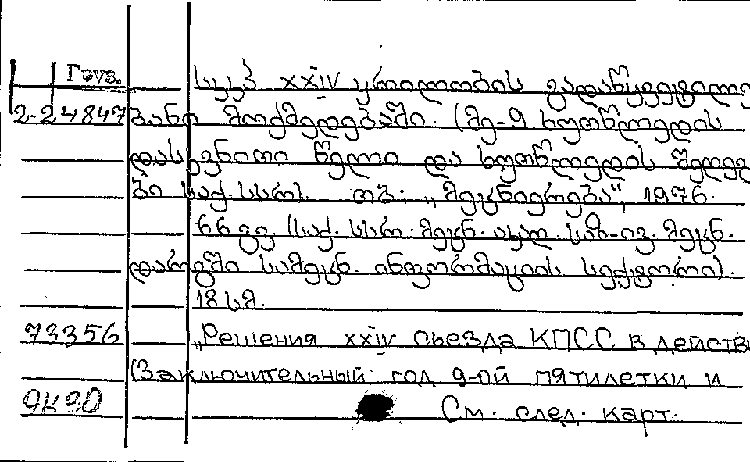 Груз.
სკკპ XXIV ყრილობის გადაწყვეტილე
2-24847 ბანი მოქმედებაში. (მე-9 ხუთწლედის
დასკვნითი წელი და ხუთწლედის შედეგ
ბი საქ. სსრ). თბ., „მეცნიერება", 1976.
66 გვ. (საქ. სსრ. მეცნ. აკად. საზ-ივ. მეცნ.
დარგში სამეცნ. ინფორმაციის სექტორი).
18 სმ.
73356 „Решения XXIV съезда КПСС в действ
(Заключительный год 9-ой пятилетки и
9К90 См. след. карт.